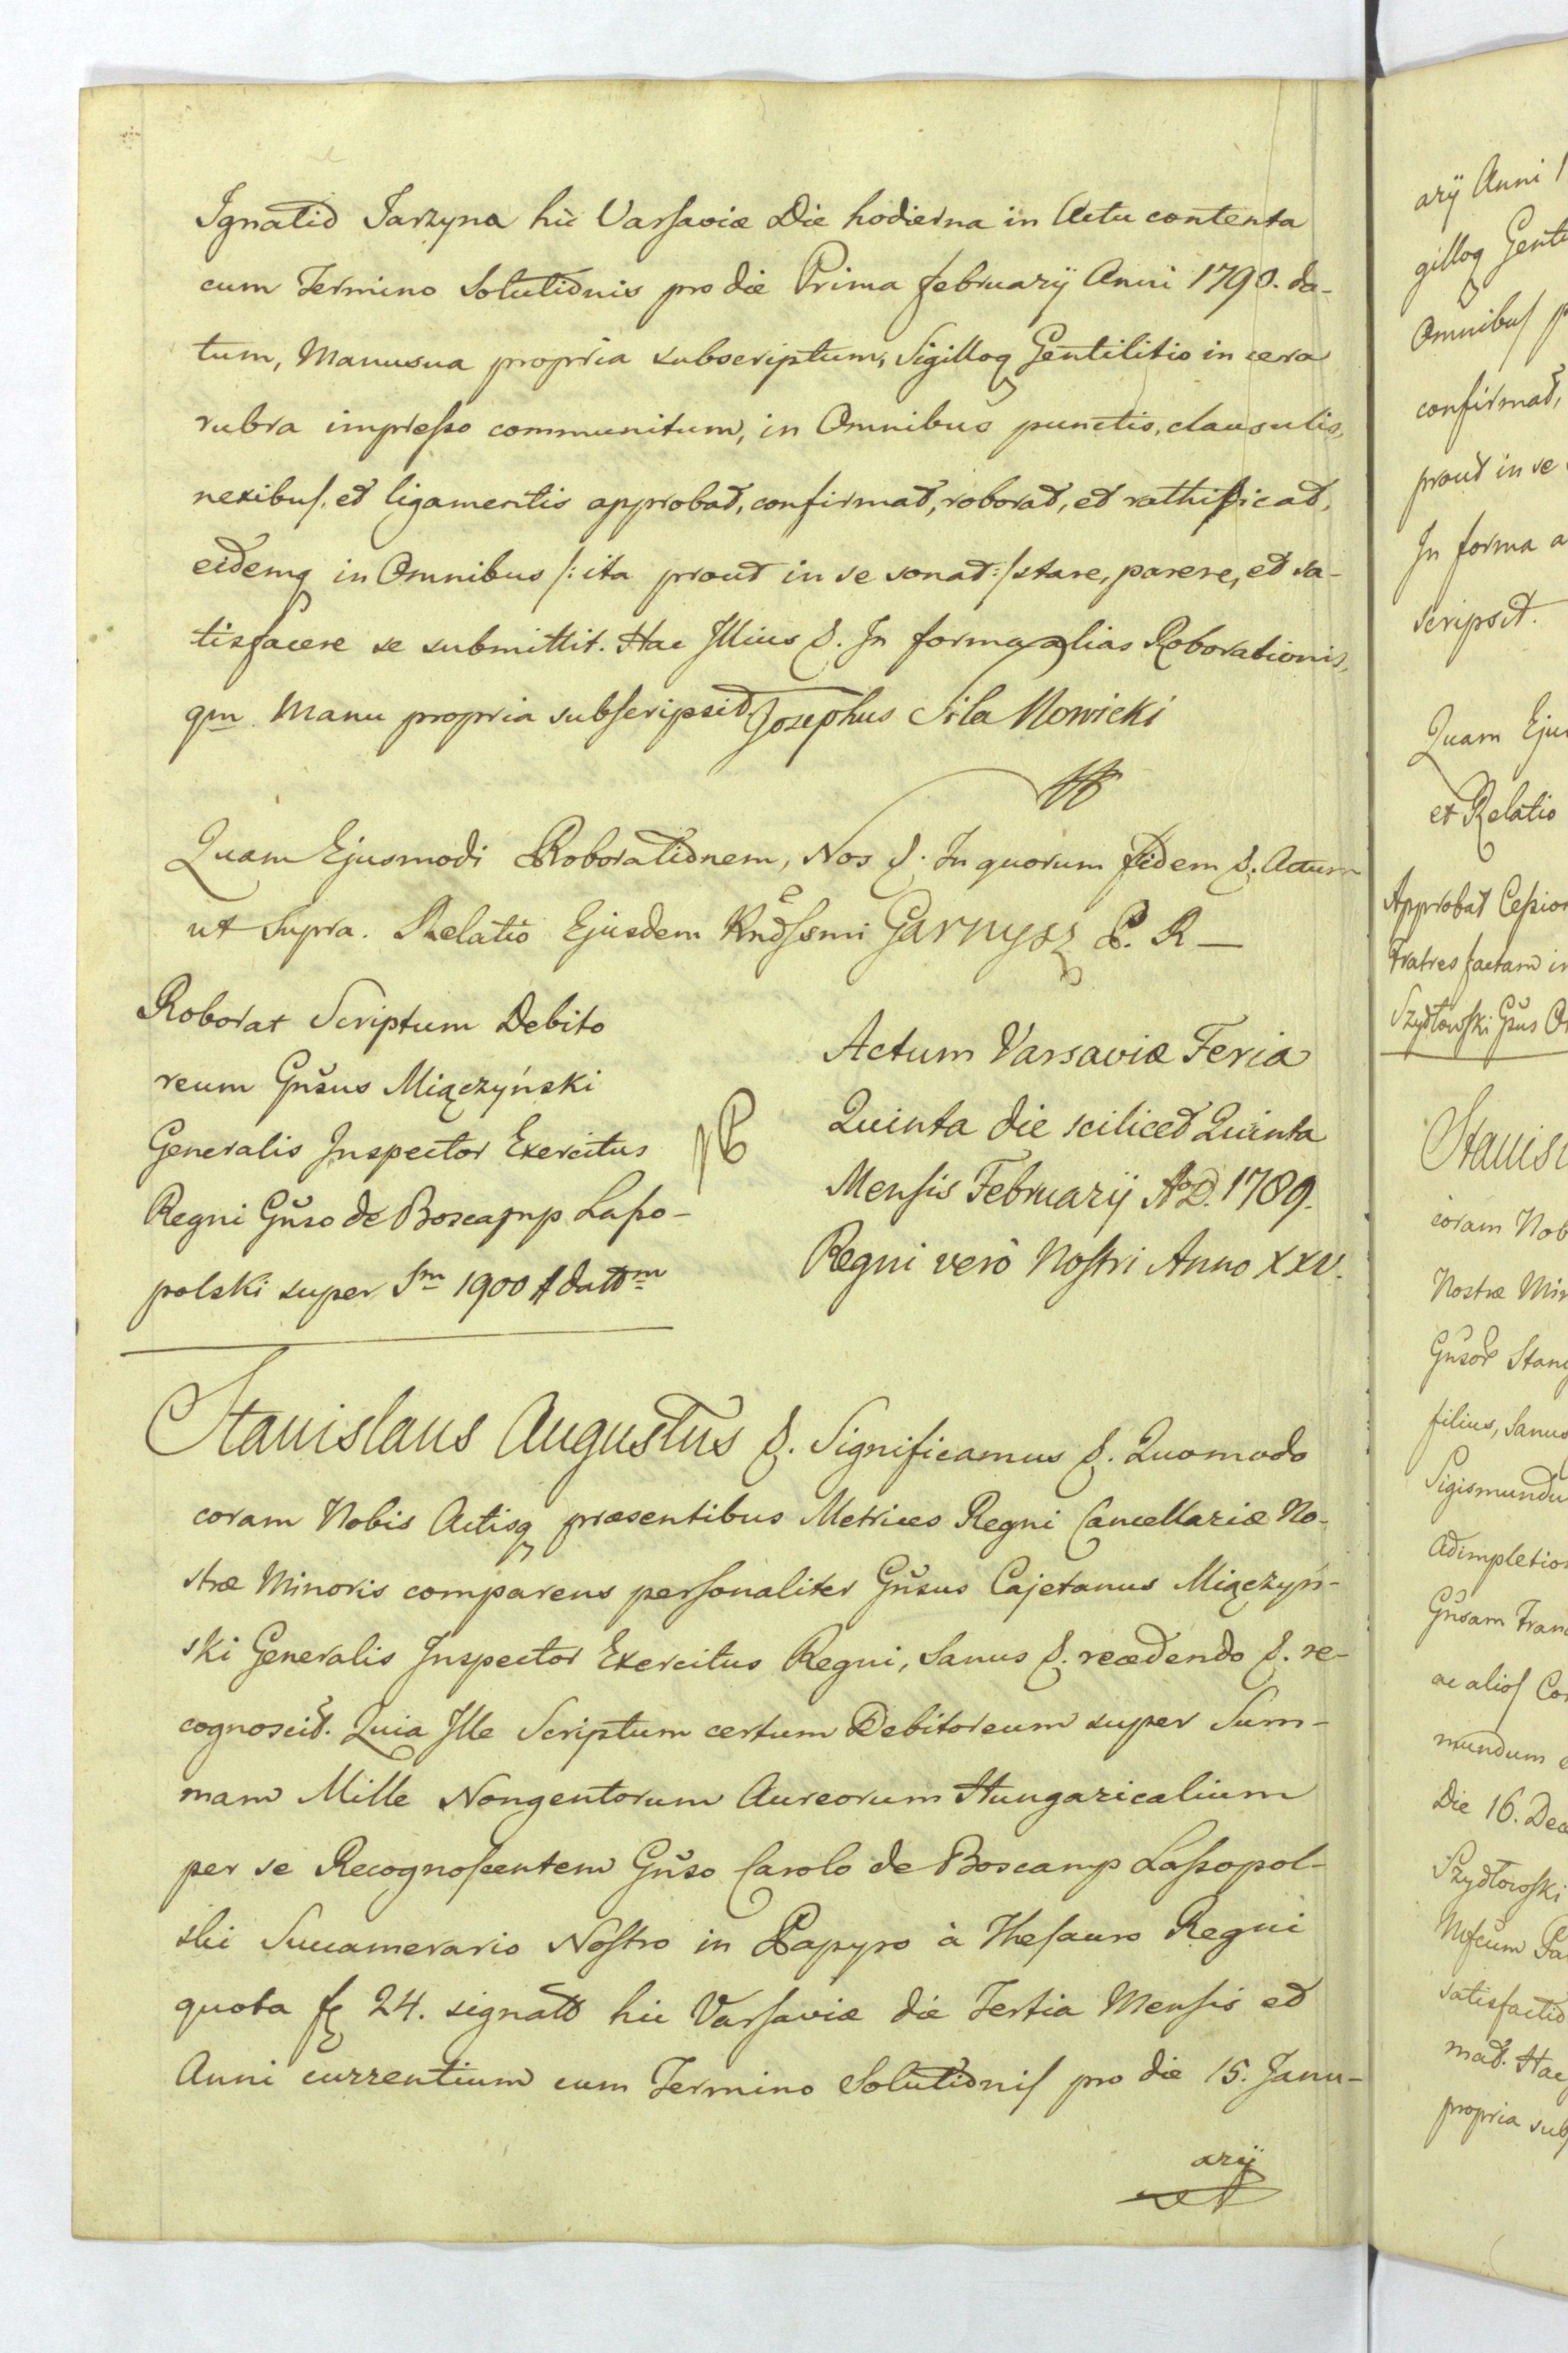 Ignatio Jarzyna hic Varsaviæ Die hodierna in Actu contenta
cum Termino Solutionis pro die Prima februarij Anni 1790. da-
tum, Manu sua propria subscriptum, Sigilloq Gentilitio in cera
rubra impresso communitum, in Omnibus punctis, clausulis,
nexibus, et ligamentis approbat, confirmat, roborat, et rathificat,
eidemq in Omnibus /: ita prout in se sonat :/ stare, parere, et sa-
tisfacere se submittit. Hac Illius &. In forma alias Roborationis,
qm Manu propria subscripsit. Josephus Siła Nowicki
Quam Ejusmodi Roborationem, Nos &. In quorum fidem &. Actum
ut Supra. Relatio Ejusdem Rndssmi Garnysz P. R —
Roborat Scriptum Debito
reum Gnsus Miączyński
Generalis Inspector Exercitus
Regni Gnso de Boscamp Lasso-
polski super Sm 1900 # dattm
Actum Varsaviæ Feria
Quinta die scilicet Quinta
Mensis Februarij A.D. 1789.
Regni verò Nostri Anno XXV.
Stanislaus Augustus &. Significamus &. Quomodo
coram Nobis Actisq præsentibus Metrices Regni Cancellariæ No-
stræ Minoris comparens personaliter Gnsus Cajetanus Miączyń-
ski Generalis Inspector Exercitus Regni, Sanus &. recedendo &. re-
cognoscit. Quia Ille Scriptum certum Debitoreum super Sum-
mam Mille Nongentorum Aureorum Hungaricalium
per se Recognoscentem Gnso Carolo de Boscamp Lassopol-
ski Succamerario Nostro in Papyro à Thesauro Regni
quota 24. signatt hic Varsaviæ die Tertia Mensis et
Anni currentium cum Termino Solutionis pro die 15. Janu-
arij
arij Anni
gilloq
Omnibus
confirmat,
prout in se
In forma
scripsit.
Quam
et Relatio
Approbat
Fratres factam
Szydłowski Gnus
coram
Nostræ
filius, Sanus
Gnsam
ac alios
mundum
Die 16.
Szydłowski
propria